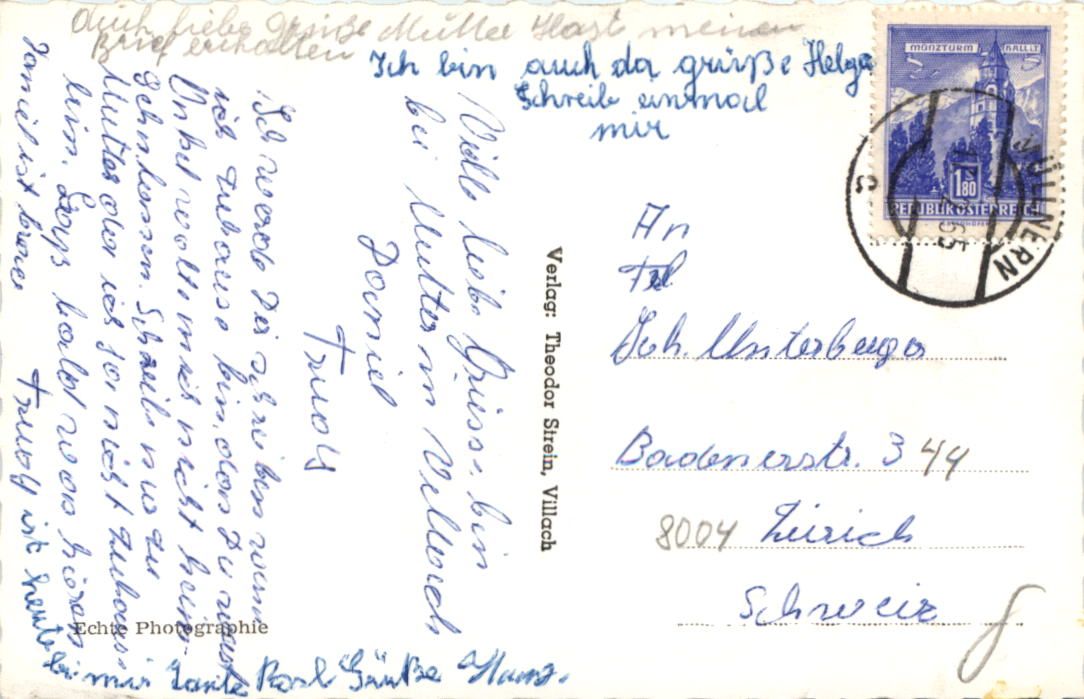 Auch liebe Grüße Mutter Hast meinen
Brief erhalten
Ich bin auch da grüße Helga
Schreib einmal
mir
Viele liebe Grüsse. bin
bei Mutter in Villach
Daniel
Trudy
Ich werde Dir schreiben wenn
ich zuhause bin, dass Du weisst
Onkel wollte mich nicht heim-
gehn lassen. Schreib nur zu
Mutter der ich bin nicht zuhause
bim. Lass bald was hören
Daniel ist brav Trudy ist heute
bei mir Tante Rosl Grüße Hans.
Verlag: Theodor Strein, Villach
Echte Photographie
MÜNZTURM HALL I.T.
S 1.80
REPUBLIK ÖSTERREICH
MÜLLNERN
65
An
Joh. Unterberger
Badenerstr. 344
8004 Zürich
Schweiz